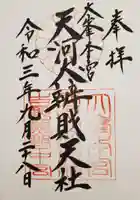 奉拝
大峯本宮
天河大辨財天社
令和三年九月二十八日